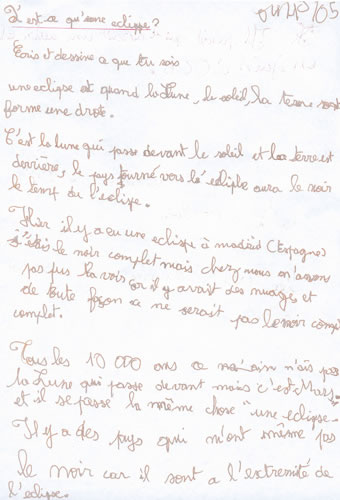 Qu'est-ce qu'une eclipse?
Ecris et dessine ce que tu sais
une eclipse est quand la Lune, le soleil, la terre sont
forme une droite.
C'est la lune qui passe devant le soleil et la terre est
derrière, le pays tourné vers l'éclipse aura le noir
le temp de l'eclipse.
Hier il y a eu une eclipse à madrid (Espagne)
le noir complet mais chez nous on
pas pus la voir car il y avait des nuages et
de toute façon ça ne serait pas le noir
complet.
Tous les 10 000 ans ce
la Lune qui passe devant mais c'est Mars
et il se passe la même chose "une eclipse.
Il y a des pays qui n'ont même pas
le noir car il sont a l'extremité de
l'eclipse.